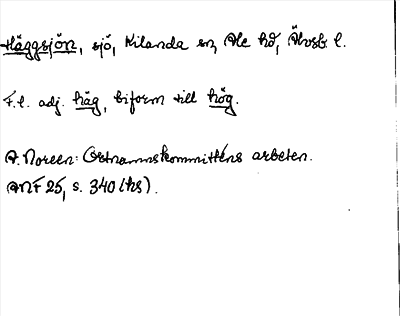 Häggsjön, sjö, Kilanda sn, Ale hd, Älvsb. l.
F.l. adj. häg, biform till hög.
A. Noreen: Ortnamnskommitténs arbeten.
ANF 25, s. 340 (hs).